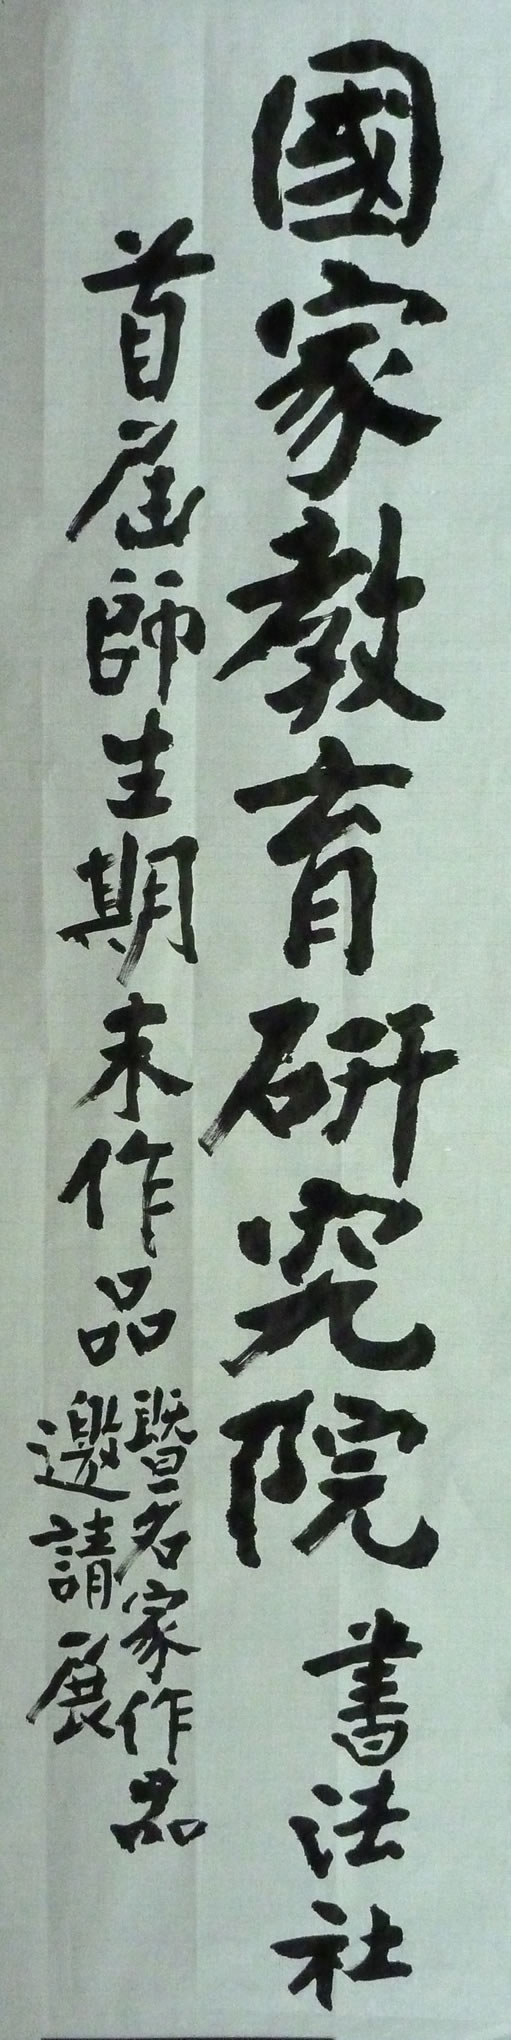 國家教育研究院書法社
首屆師生期末作品
暨名家作品
邀請展